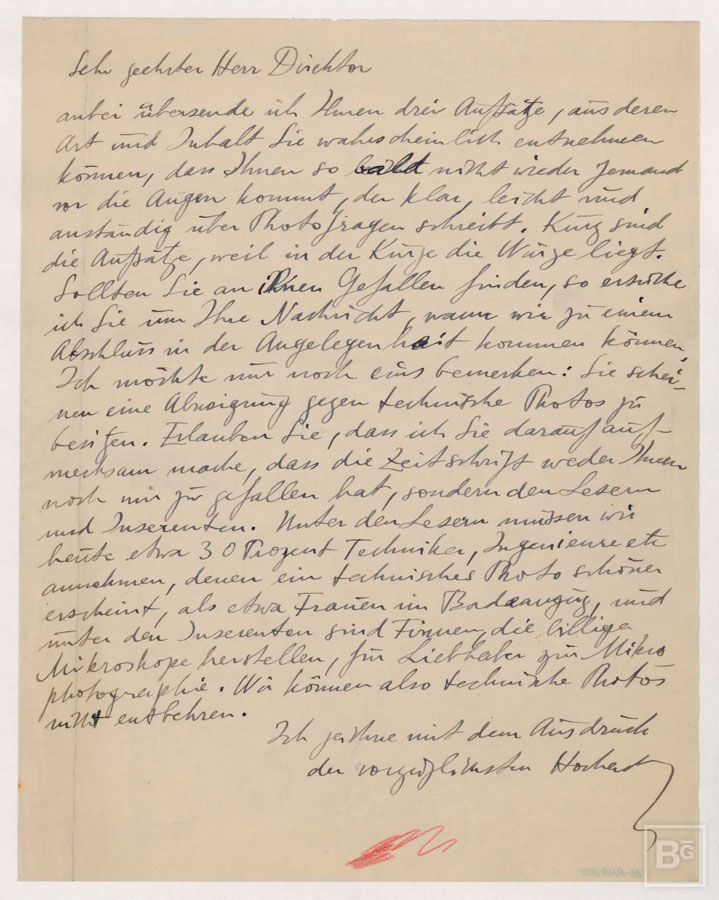 Sehr geehrter Herr Direktor
anbei übersende ich Ihnen drei Aufsätze, aus deren
Art und Inhalt Sie wahrscheinlich entnehmen
können, dass Ihnen so bald nicht wieder Jemand
vor die Augen kommt, der klar, leicht und
anständig über Photofragen schreibt. Kurz sind
die Aufsätze, weil in der Kürze die Würze liegt.
Sollten Sie an ihnen Gefallen finden, so ersuche
ich Sie um Ihre Nachricht, wann wir zu einem
Abschluss in der Angelegenheit kommen können.
Ich möchte nur noch eins bemerken: Sie schei-
nen eine Abneigung gegen technische Photos zu
besitzen. Erlauben Sie, dass ich Sie darauf auf-
merksam mache, dass die Zeitschrift weder Ihnen
noch mir zu gefallen hat, sondern den Lesern
und Inserenten. Unter den Lesern müssen wir
heute etwa 30 Prozent Techniker, Ingenieure etc
annehmen, denen ein technisches Photo schöner
erscheint, als etwa Frauen im Badeanzug, und
unter den Inserenten sind Firmen, die billige
Mikroskope herstellen, für Liebhaber zur Mikro
photographie. Wir können also technische Photos
nicht entbehren.
Ich zeichne mit dem Ausdruck
der vorzüglichsten Hochacht
BG